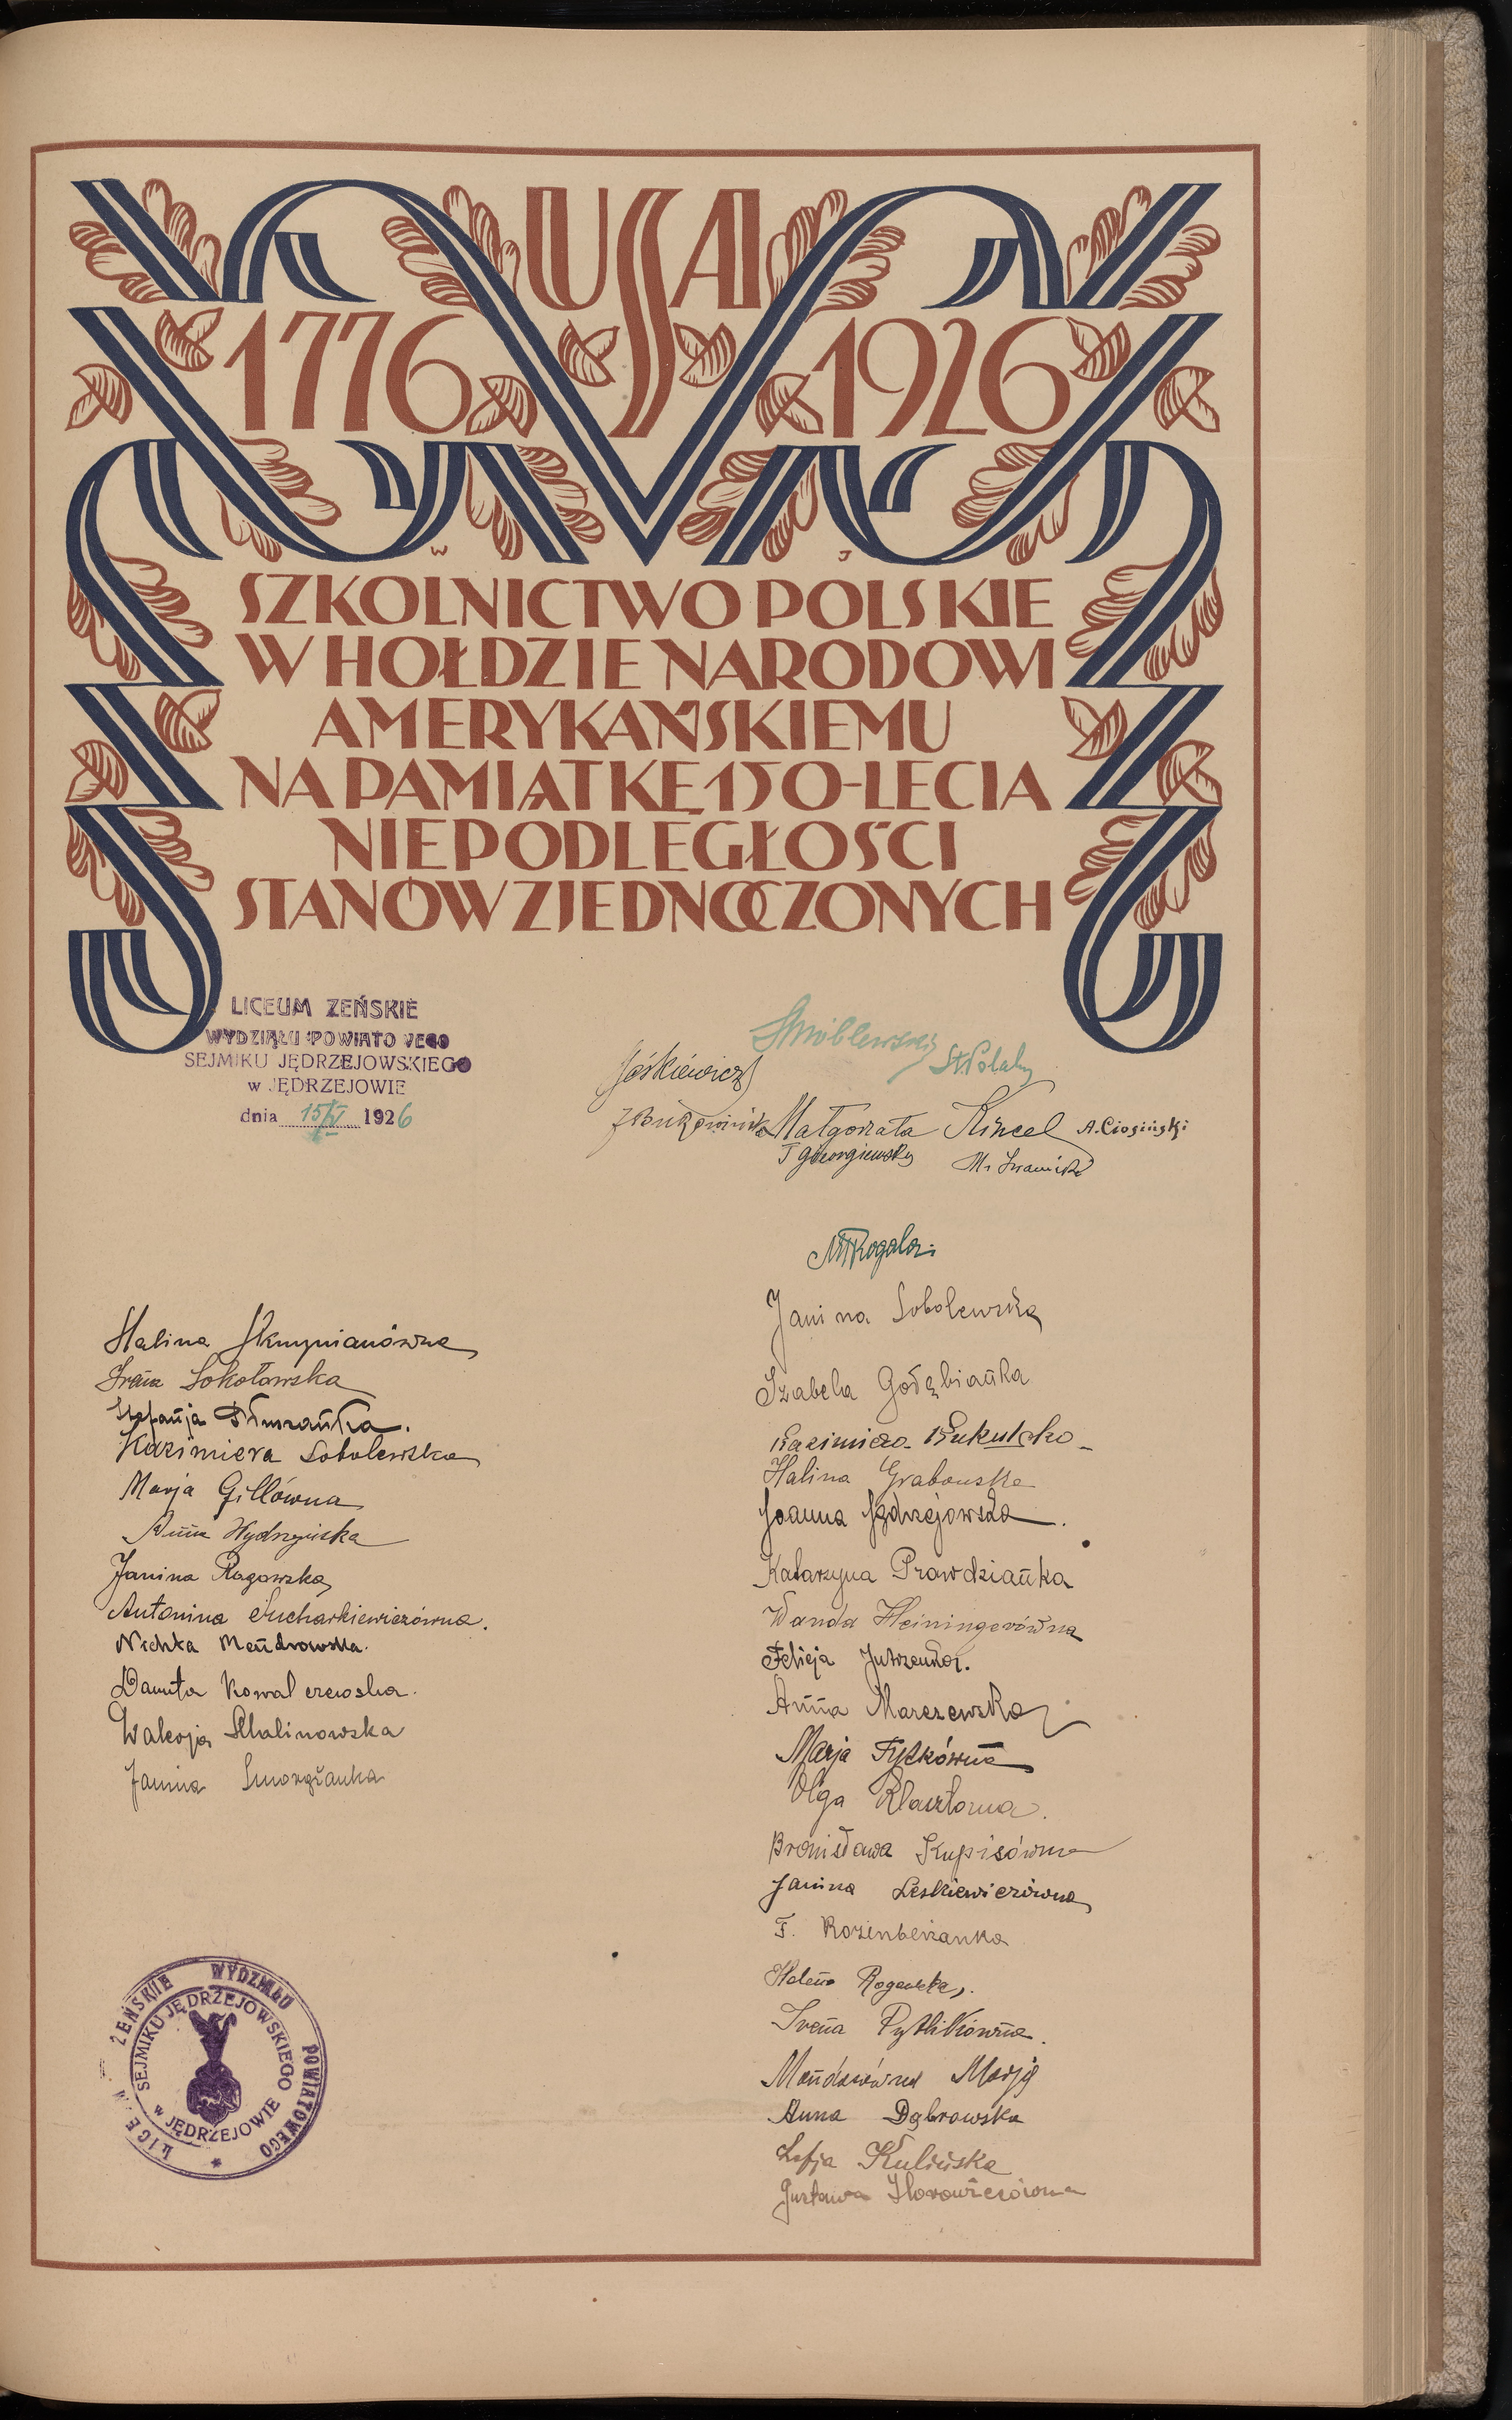 USA
1776 1926
W J
SZKOLNICTWO POLSKIE
W HOŁDZIE NARODOWI
AMERYKAŃSKIEMU
NA PAMIĄTKĘ 150-LECIA
NIEPODLEGŁOŚCI
STANÓW ZJEDNOCZONYCH
LICEUM ŻEŃSKIE
WYDZIAŁU POWIATOWEGO
SEJMIKU JĘDRZEJOWSKIEGO
w JĘDRZEJOWIE
dnia 15/V 1926
Małgorzata Kincel A. Ciosiński
T Georgiewsky
MRogala
Halina
Irena Sokołowska
Stefanja
Kazimiera Sobolewska
Marja Gillówna
Anna
Janina Rogowska
Antonina Sucharkiewiczówna.
Mendrowska.
Danuta Kowalczewska.
Walerja Malinowska
Janina
Janina Sobolewska
Izabela Gołębianka
Kazimiera
Halina Grabowska
Joanna Jędrzejowska.
Katarzyna Prawdzianka
Wanda Heiningerówna
Felicja Jutrzenka.
Anna Marczewska
Marja Fytkówna
Olga
Bronisława Kupisówna
Janina Leskiewiczówna
F. Rozenberżanka
Helena Rogowska.
Irena Pytlikówna.
Marja
Anna Dąbrowska
Zofja Kulińska
Gustawa Horowiczówna
LICEUM ŻEŃSKIE WYDZIAŁU POWIATOWEGO
SEJMIKU JĘDRZEJOWSKIEGO
w JĘDRZEJOWIE